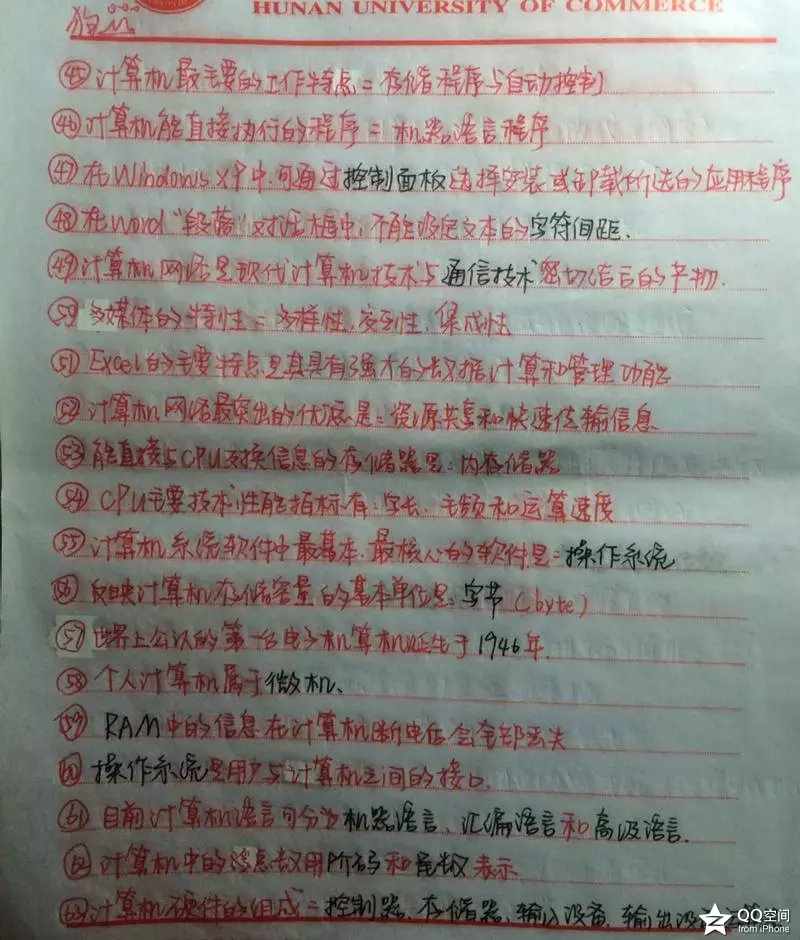 HUNAN UNIVERSITY OF COMMERCE
㊺ 计算机最主要的工作特点=存储程序与自动控制
㊻ 计算机能直接执行的程序=机器语言程序
㊼ 在Windows XP中,可通过控制面板选择安装或卸载所选的应用程序
㊽ 在Word“段落”对话框中,不能设定文本的字符间距.
㊾ 计算机网络是现代计算机技术与通信技术密切结合的产物.
㊿ 多媒体的特性=多样性,交互性,集成性
(51) Excel的主要特点是其具有强大的数据计算和管理功能
(52) 计算机网络最突出的优点是:资源共享和快速传输信息
(53) 能直接与CPU交换信息的存储器是:内存储器
(54) CPU主要技术性能指标有:字长、主频和运算速度
(55) 计算机系统软件中最基本,最核心的软件是:操作系统
(56) 反映计算机存储容量的基本单位是:字节(byte)
(57) 世界上公认的第一台电子机算机诞生于1946年.
(58) 个人计算机属于微机、
(59) RAM中的信息在计算机断电后会全部丢失
(60) 操作系统是用户与计算机之间的接口.
(61) 目前计算机语言可分为机器语言、汇编语言和高级语言.
(62) 计算机中的浮点数用阶码和尾数表示
(63) 计算机硬件的组成=控制器、存储器、输入设备、输出设
QQ空间
from iPhone